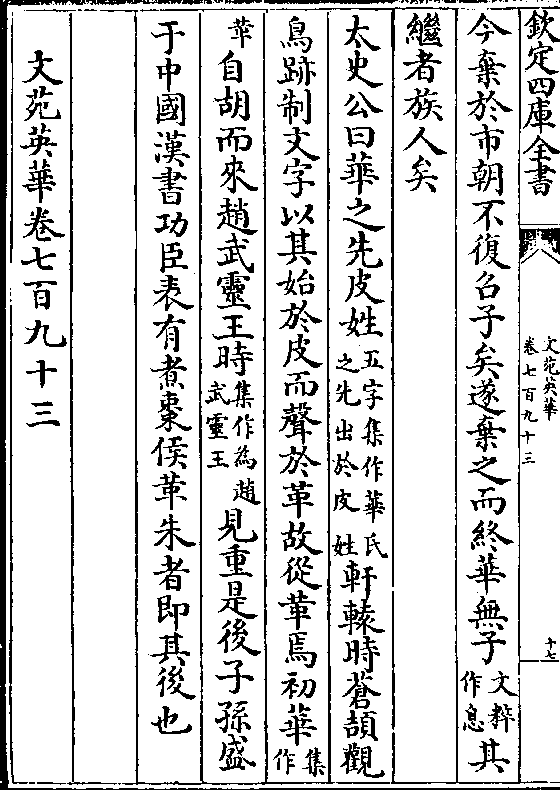 欽定四庫全書
文苑英華
卷七百九十三
十七
今棄於市朝不復召子矣遂棄之而終華無子文粹作息其
繼者族人矣
太史公曰華之先皮姓五字集作華氏之先出於皮姓軒轅時蒼頡觀
鳥跡制文字以其始於皮而聲於革故從革焉初華集作
革自胡而來趙武靈王時集作為趙武靈王見重是後子孫盛
于中國漢書功臣表有煮棗侯革朱者即其後也
文苑英華卷七百九十三